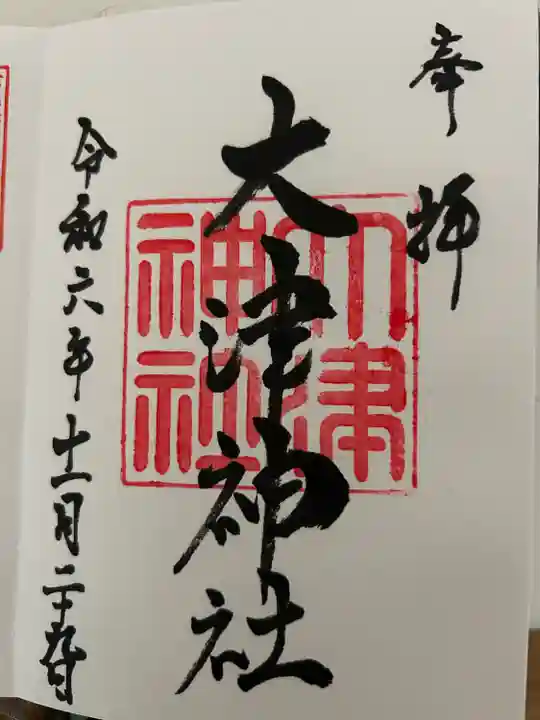 奉拝
大津神社
大津神社
令和六年十一月二十九日